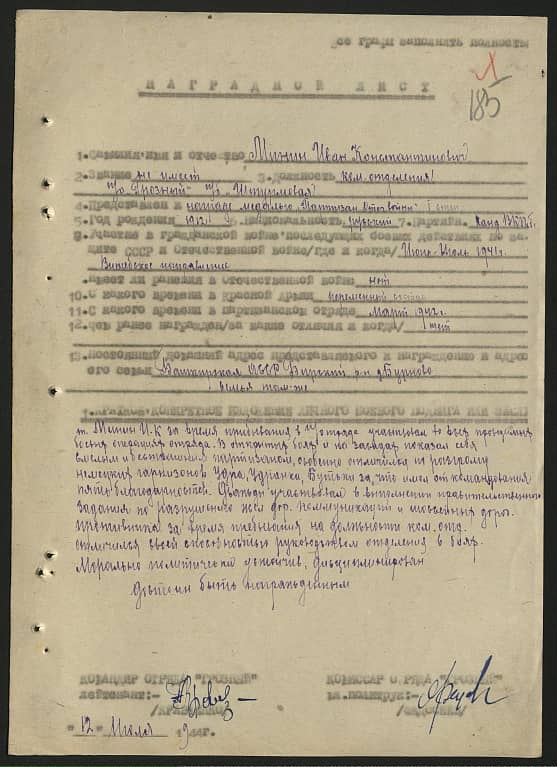 все графы заполнять полностью
Л
185
НАГРАДНОЙ ЛИСТ
1. Фамилия, имя и отчество Минин Иван Константинович
2. Звание не имеет 3. Должность ком. отделения
п/о "Грозный"
4. Представлен к награде медалью "Партизан Отеч. войны" I степ.
5. Год рождения 1912 6. Национальность русский 7. Партийн. Канд. ВКПб.
8. Участие в гражданской войне последующих боевых действиях по за-
щите СССР и Отечественной войне/где и когда/ Июнь-Июль 1941г.
Витебское направление
имеет ли ранения в Отечественной войне нет
10. С какого времени в Красной Армии переменный состав
11. С какого времени в партизанском отряде Март 1942г.
12. Чем ранее награжден/за какие отличия и когда/ нет
13. Постоянный домашний адрес представляемого к награждению и адрес
его семьи Башкирская АССР Бирский р-н д. Бурново
семья там-же
1. КРАТКОЕ КОНКРЕТНОЕ ИЗЛОЖЕНИЕ ЛИЧНОГО БОЕВОГО ПОДВИГА ИЛИ ЗАСЛ
т. Минин И.К. за время пребывания в отряде участвовал во всех проводимых
боевых операциях отряда. В открытых боях и на засадах показал себя
смелым и бесстрашным партизаном, особенно отличился по разгрому
немецких гарнизонов Удра, Бутьки за, что имел от командования
пять благодарностей. участвовал в выполнении правительственного
задания по разрушению жел. дор. коммуникаций и шоссейных дорог
противника за время пребывания на должности ком. отд.
отличился своей способностью руководством отделения в боях.
Морально политически устойчив, дисциплинирован
Достоин быть награжденным
КОМАНДИР ОТРЯДА "ГРОЗНЫЙ" КОМИССАР ОТРЯДА "ГРОЗНЫЙ"
лейтенант:- мл. политрук:-
"12" Июля 1944г.